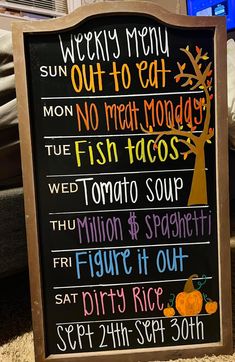 Weekly Menu
SUN Out to Eat
MON No meat Monday
TUE Fish tacos
WED Tomato soup
THU Million $ Spaghetti
FRI Figure it out
SAT Dirty Rice
Sept 24th - Sept 30th